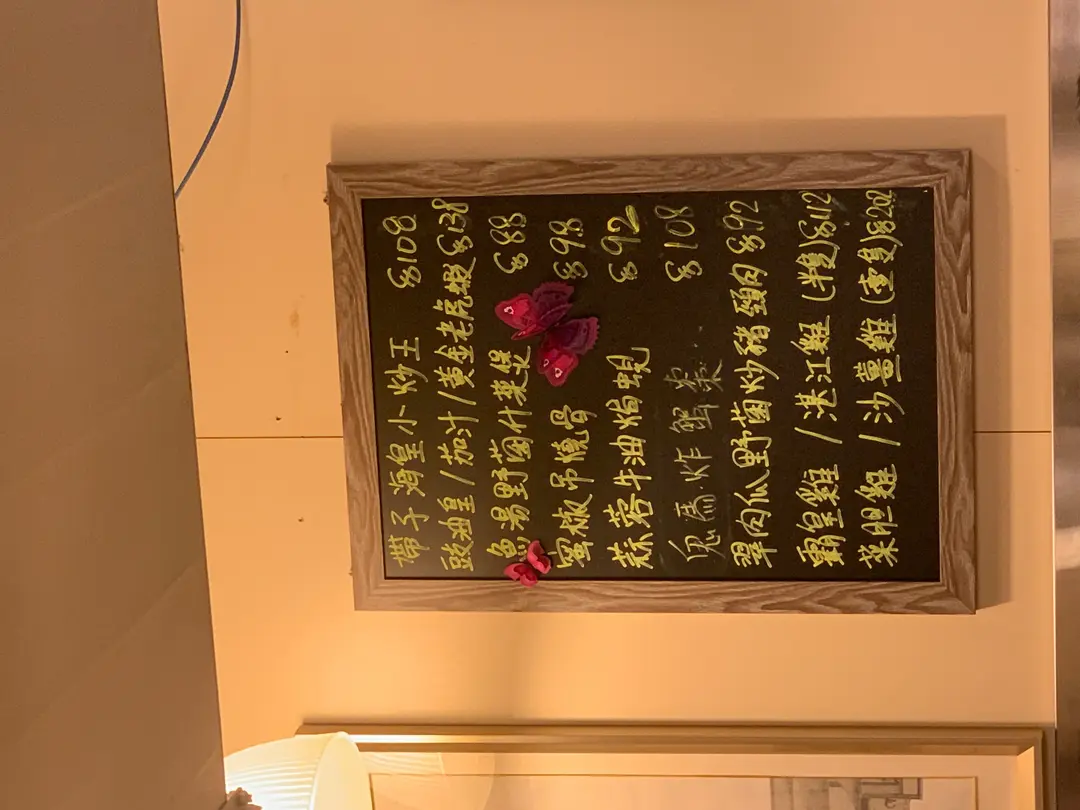 帶子海皇小炒王 $108
豉油皇/茄汁/黃金老虎蝦 $138
魚湯野菌什菜煲 $88
蜜椒吊燒骨 $98
蒜蓉牛油焗蜆 $92
鬼馬炸蟹棗 $108
翠肉瓜野菌炒豬頸肉 $92
霸皇雞/湛江雞(半隻)$112
菜胆雞/沙薑雞(壹隻)$202